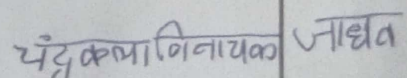 चंद्रकला विनायक जाधव